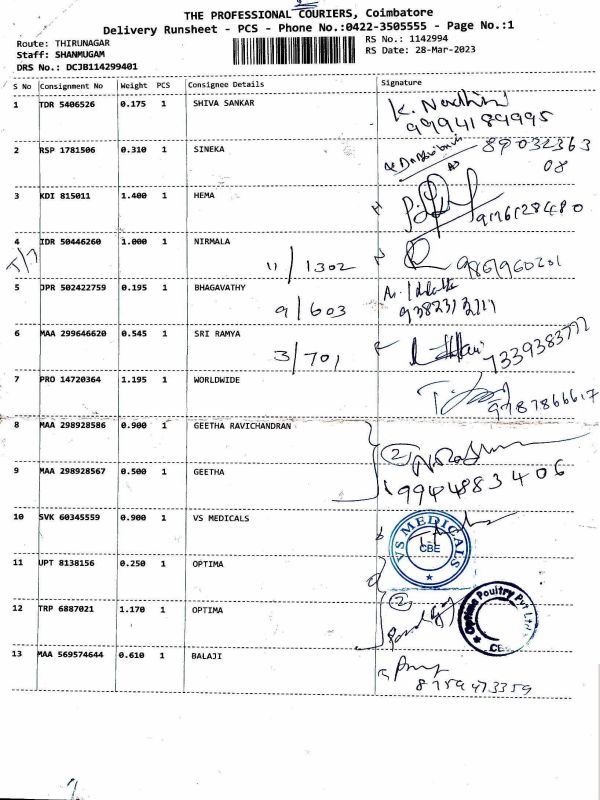 THE PROFESSIONAL COURIERS, Coimbatore
Delivery Runsheet - PCS - Phone No.:0422-3505555 - Page No.:1
Route: THIRUNAGAR
RS No.: 1142994
Staff: SHANMUGAM
RS Date: 28-Mar-2023
DRS No.: DCJB114299401
S No Consignment No Weight PCS Consignee Details Signature
1 TDR 5406526 0.175 1 SHIVA SANKAR
9994189995
2 RSP 1781506 0.310 1 SINEKA 89032363
08
3 KDI 815011 1.400 1 HEMA
4 IDR 50446260 1.000 1 NIRMALA
T/7 11/1302
5 JPR 502422759 0.195 1 BHAGAVATHY
9/603
6 MAA 299646620 0.545 1 SRI RAMYA
3/701 7339383772
7 PRO 14720364 1.195 1 WORLDWIDE
9787866617
8 MAA 298928586 0.900 1 GEETHA RAVICHANDRAN
2
9 MAA 298928567 0.500 1 GEETHA
9944883406
10 SVK 60345559 0.900 1 VS MEDICALS
VS MEDICALS
CBE
11 UPT 8138156 0.250 1 OPTIMA
12 TRP 6887021 1.170 1 OPTIMA
2
Optima Poultry Pvt Ltd
CBE
13 MAA 569574644 0.610 1 BALAJI
8759473359